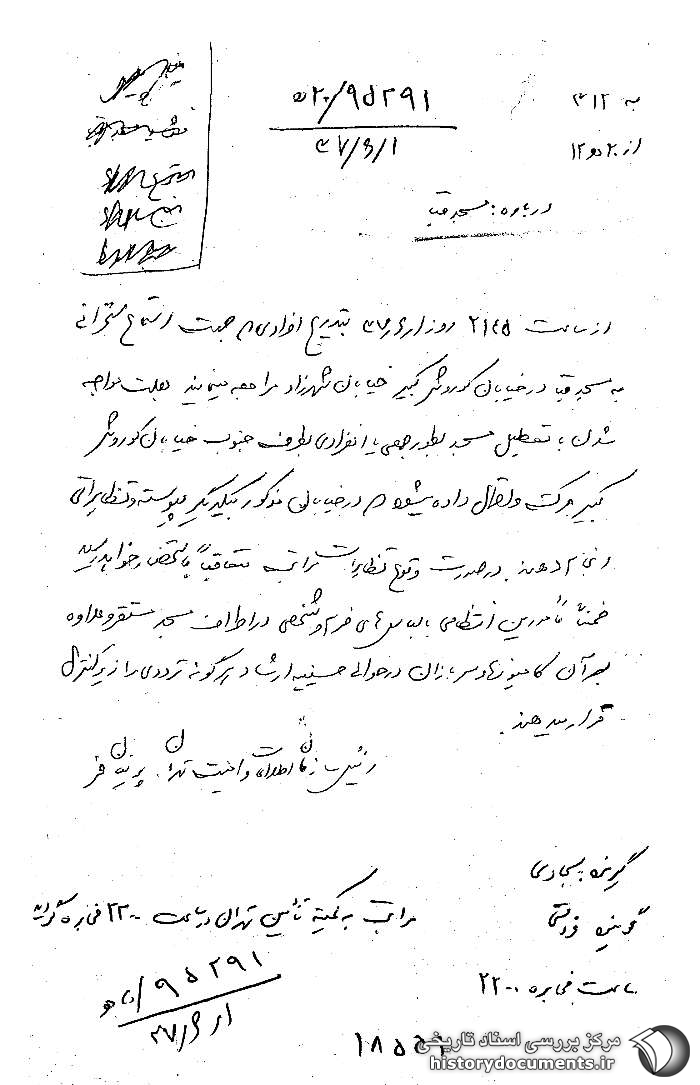 به ۳۱۲
از ۲۰ ه ۱۲
۹۵۲۹۱/ ۲۰ه
۳۷/۶/۱
درباره: مسجد قبا
از ساعت ۲۱۴۵ روز بتدریج افرادی که جهت استماع سخنرانی
به مسجد قبا در خیابان کوروش کبیر خیابان شهرزاد مراجعه مینمایند بعلت مواجه
شدن با تعطیل مسجد بطور جمعی یا انفرادی بطرف جنوب خیابان کوروش
کبیر حرکت و احتمال داده میشود که در خیابان مذکور بیکدیگر پیوسته و تظاهراتی
انجام دهند. در صورت وقوع تظاهرات مراتب متعاقباً باستحضار خواهد رسید
ضمناً مأمورین انتظامی با لباس‌های فرم و شخصی در اطراف مسجد مستقر و علاوه
بر آن کامیونها و سربازان در حوالی حسینیه ارشاد هرگونه ترددی را زیر کنترل
قرار میدهند.
رئیس سازمان اطلاعات و امنیت تهران. پرنیان فر
گیرنده: سجادی
مراتب به کمیته تأمین تهران در ساعت ۲۲۰۰ مخابره گردید
ساعت مخابره ۲۲۰۰
۹۵۲۹۱/ ۲۰ه
۳۷/۶/۱
مرکز بررسی اسناد تاریخی
historydocuments.ir